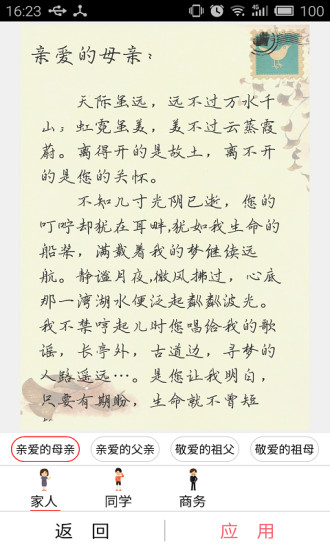 16:23
4G
100
亲爱的母亲：
天际虽远，远不过万水千
山；虹霓虽美，美不过云蒸霞
蔚。离得开的是故土，离不开
的是您的关怀。
不知几寸光阴已逝，您的
叮咛却犹在耳畔，犹如我生命的
船桨，满载着我的梦继续远
航。静谧月夜，微风拂过，心底
那一湾湖水便泛起粼粼波光。
我不禁哼起儿时您唱给我的歌
谣，长亭外，古道边，寻梦的
人路遥远…。是您让我明白，
只要有期盼，生命就不曾短
亲爱的母亲 亲爱的父亲 敬爱的祖父 敬爱的祖母
家人 同学 商务
返 回 应 用